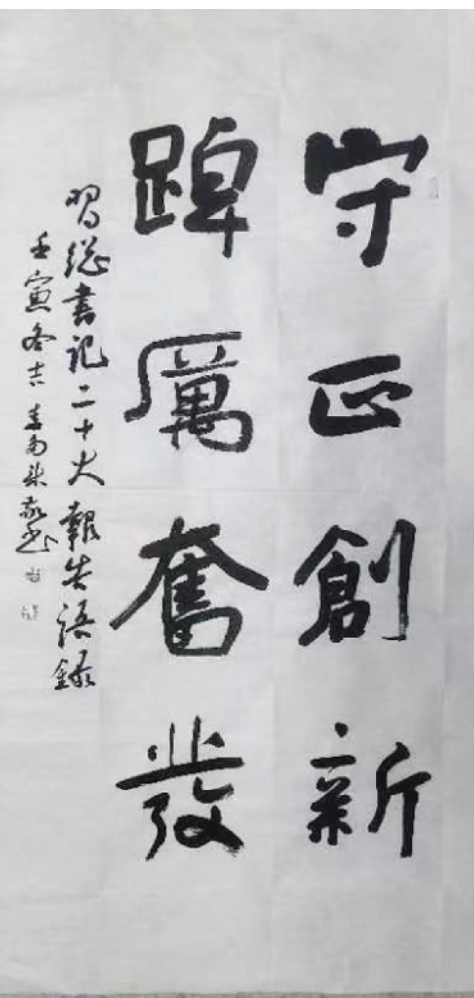 守正創新
踔厲奮發
習總書記二十大報告語錄
壬寅冬吉